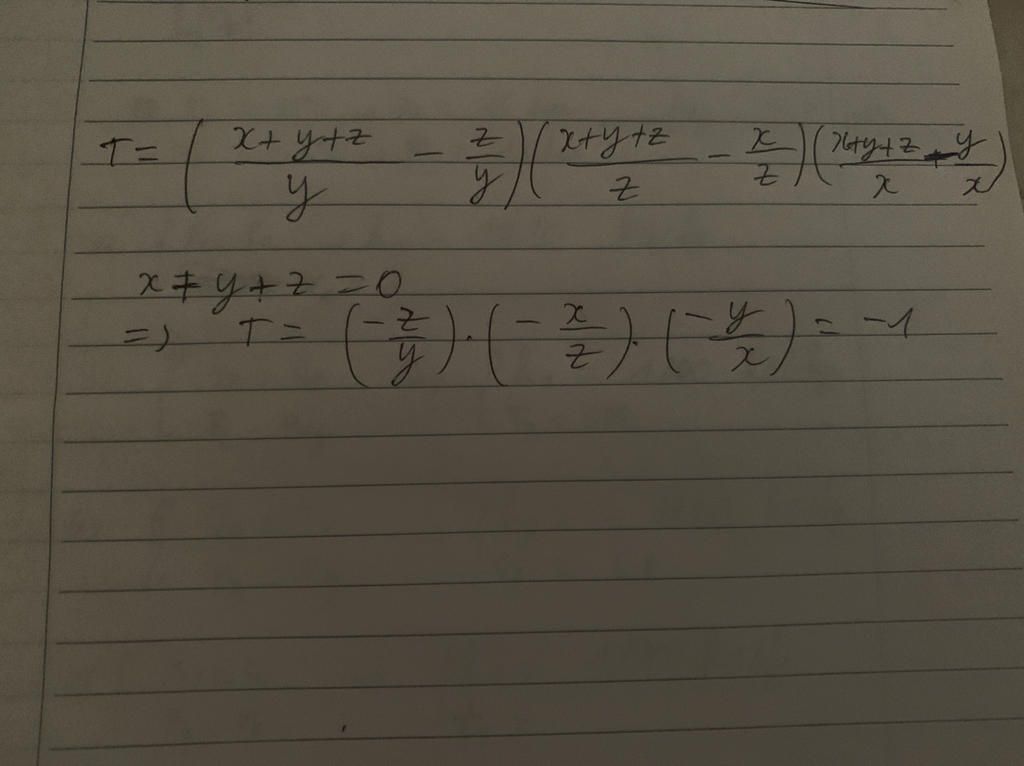 T = ( (x+y+z)/y - z/y ) ( (x+y+z)/z - x/z ) ( (x+y+z)/x - y/x )
x + y + z = 0
=> T = ( - z/y ) . ( - x/z ) . ( - y/x ) = -1